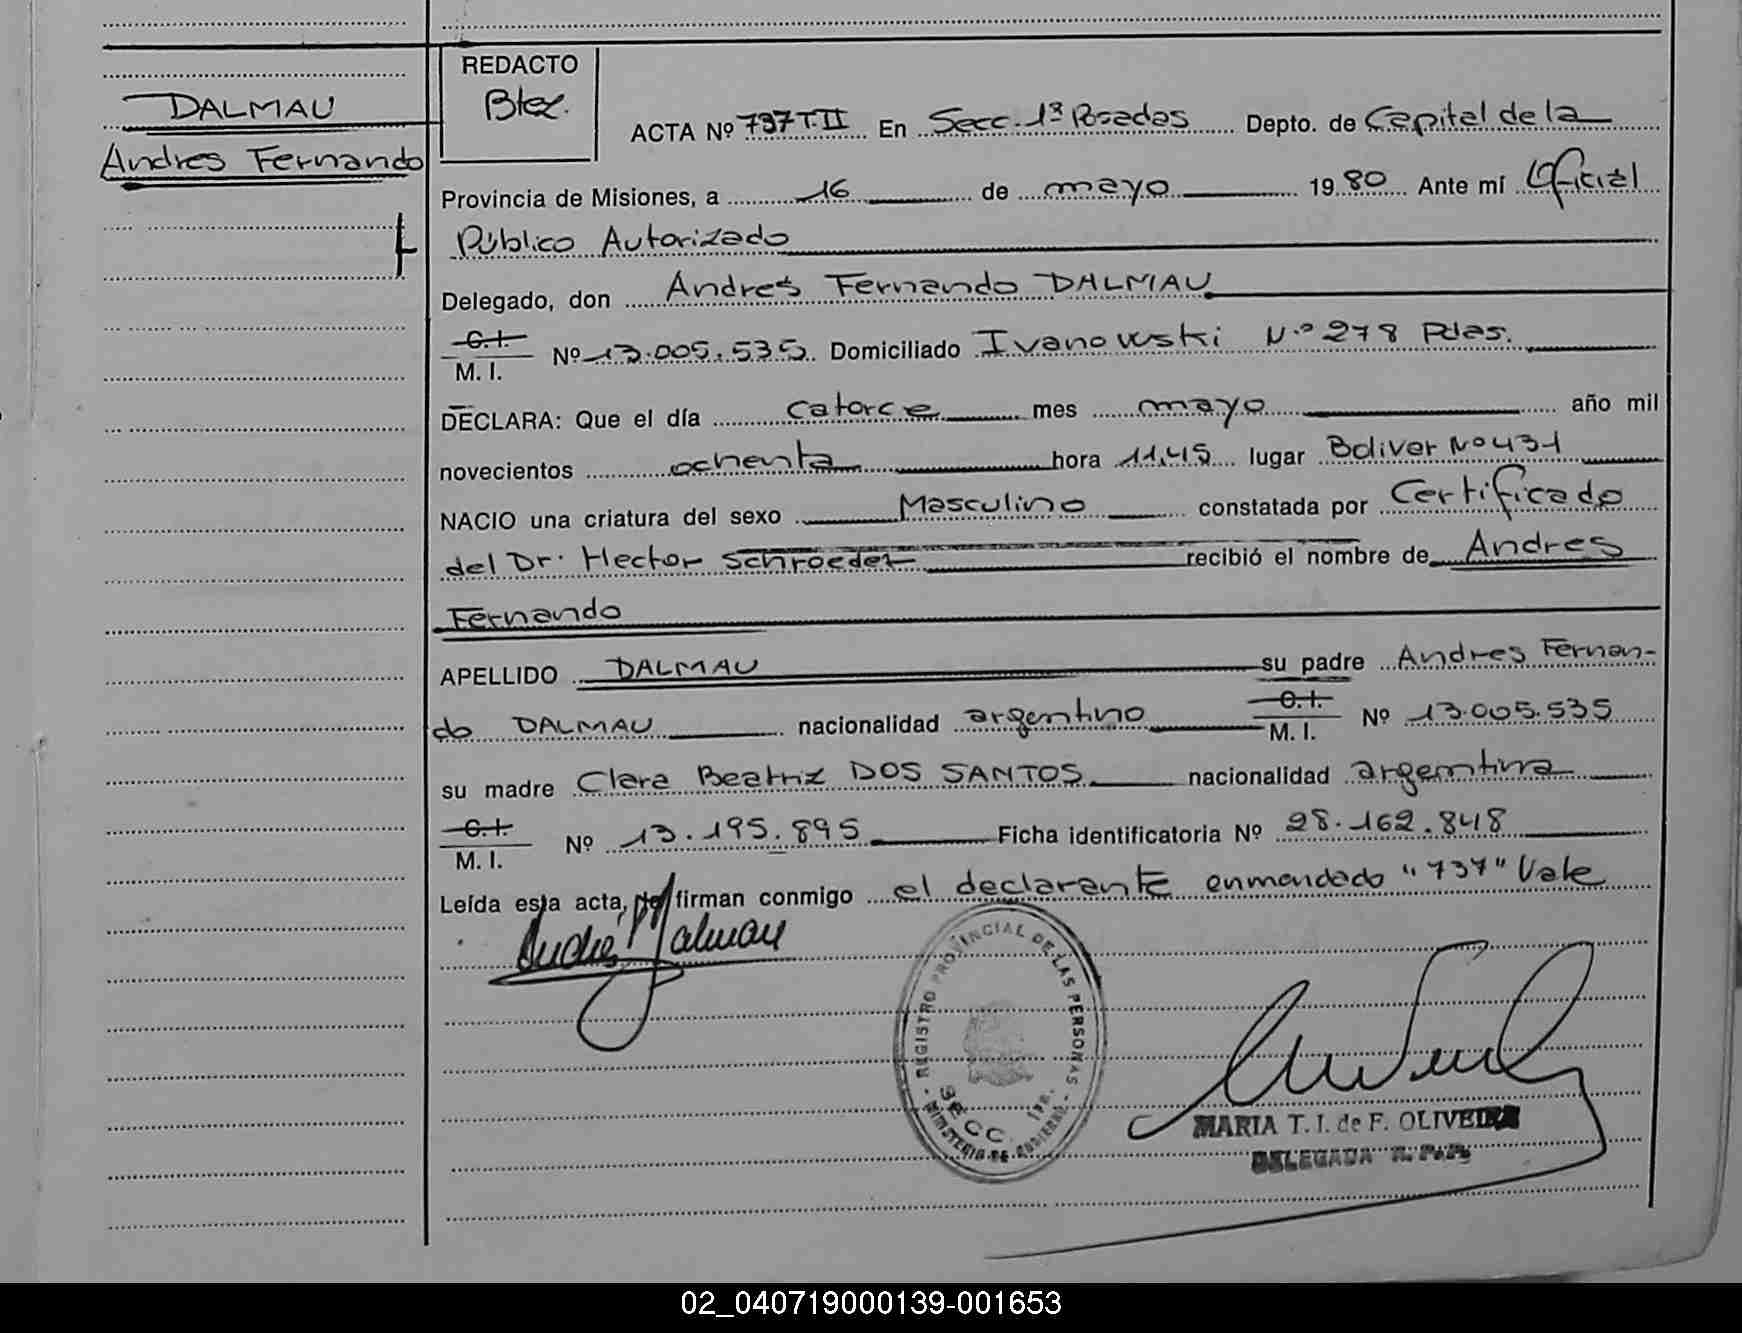 DALMAU
Andres Fernando
REDACTO
Btez.
ACTA Nº 737 T.II En Secc. 1ª Posadas Depto. de Capital de la
Provincia de Misiones, a 16 de mayo 1980 Ante mí Oficial
Público Autorizado
Delegado, don Andres Fernando DALMAU
C.I.
M. I. Nº 13.005.535 Domiciliado Ivanowski N.º 278 Pdas.
DECLARA: Que el día catorce mes mayo año mil
novecientos ochenta hora 11,45 lugar Bolivar Nº 431
NACIO una criatura del sexo Masculino constatada por Certificado
del Dr. Hector Schroeder recibió el nombre de Andres
Fernando
APELLIDO DALMAU su padre Andres Fernan-
do DALMAU nacionalidad argentino C.I. M. I. Nº 13.005.535
su madre Clara Beatriz DOS SANTOS nacionalidad argentina
C.I.
M. I. Nº 13.195.895 Ficha identificatoria Nº 28.162.848
Leída esta acta, la firman conmigo el declarante enmendado "737" Vale
Andrés Dalmau
REGISTRO PROVINCIAL DE LAS PERSONAS
SECC. 1RA.
MINISTERIO DE GOBIERNO
MARIA T. I. de F. OLIVEIRA
DELEGADA R. P. P.
02_040719000139-001653